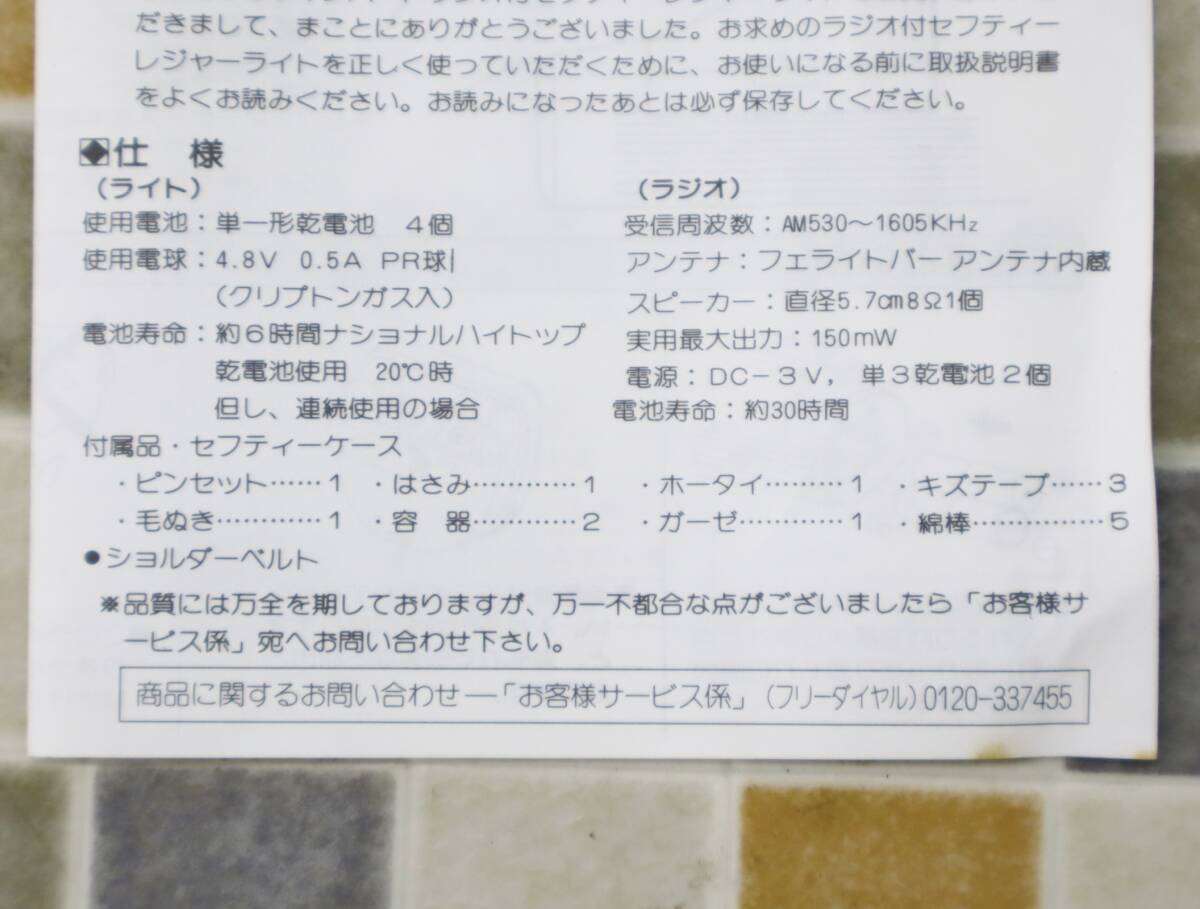 だきまして、まことにありがとうございました。お求めのラジオ付セフティー
レジャーライトを正しく使っていただくために、お使いになる前に取扱説明書
をよくお読みください。お読みになったあとは必ず保存してください。
◆仕　様
（ライト）
使用電池：単一形乾電池　４個
使用電球：4.8V　0.5A　PR球
（クリプトンガス入）
電池寿命：約６時間ナショナルハイトップ
乾電池使用　20℃時
但し、連続使用の場合
（ラジオ）
受信周波数：AM530〜1605KHz
アンテナ：フェライトバー アンテナ内蔵
スピーカー：直径5.7cm8Ω1個
実用最大出力：150mW
電源：DC−３V，単３乾電池２個
電池寿命：約30時間
付属品・セフティーケース
・ピンセット……1　・はさみ…………1　・ホータイ………1　・キズテープ……3
・毛ぬき…………1　・容　器…………2　・ガーゼ…………1　・綿棒……………5
●ショルダーベルト
※品質には万全を期しておりますが、万一不都合な点がございましたら「お客様サ
ービス係」宛へお問い合わせ下さい。
商品に関するお問い合わせ―「お客様サービス係」（フリーダイヤル）0120-337455